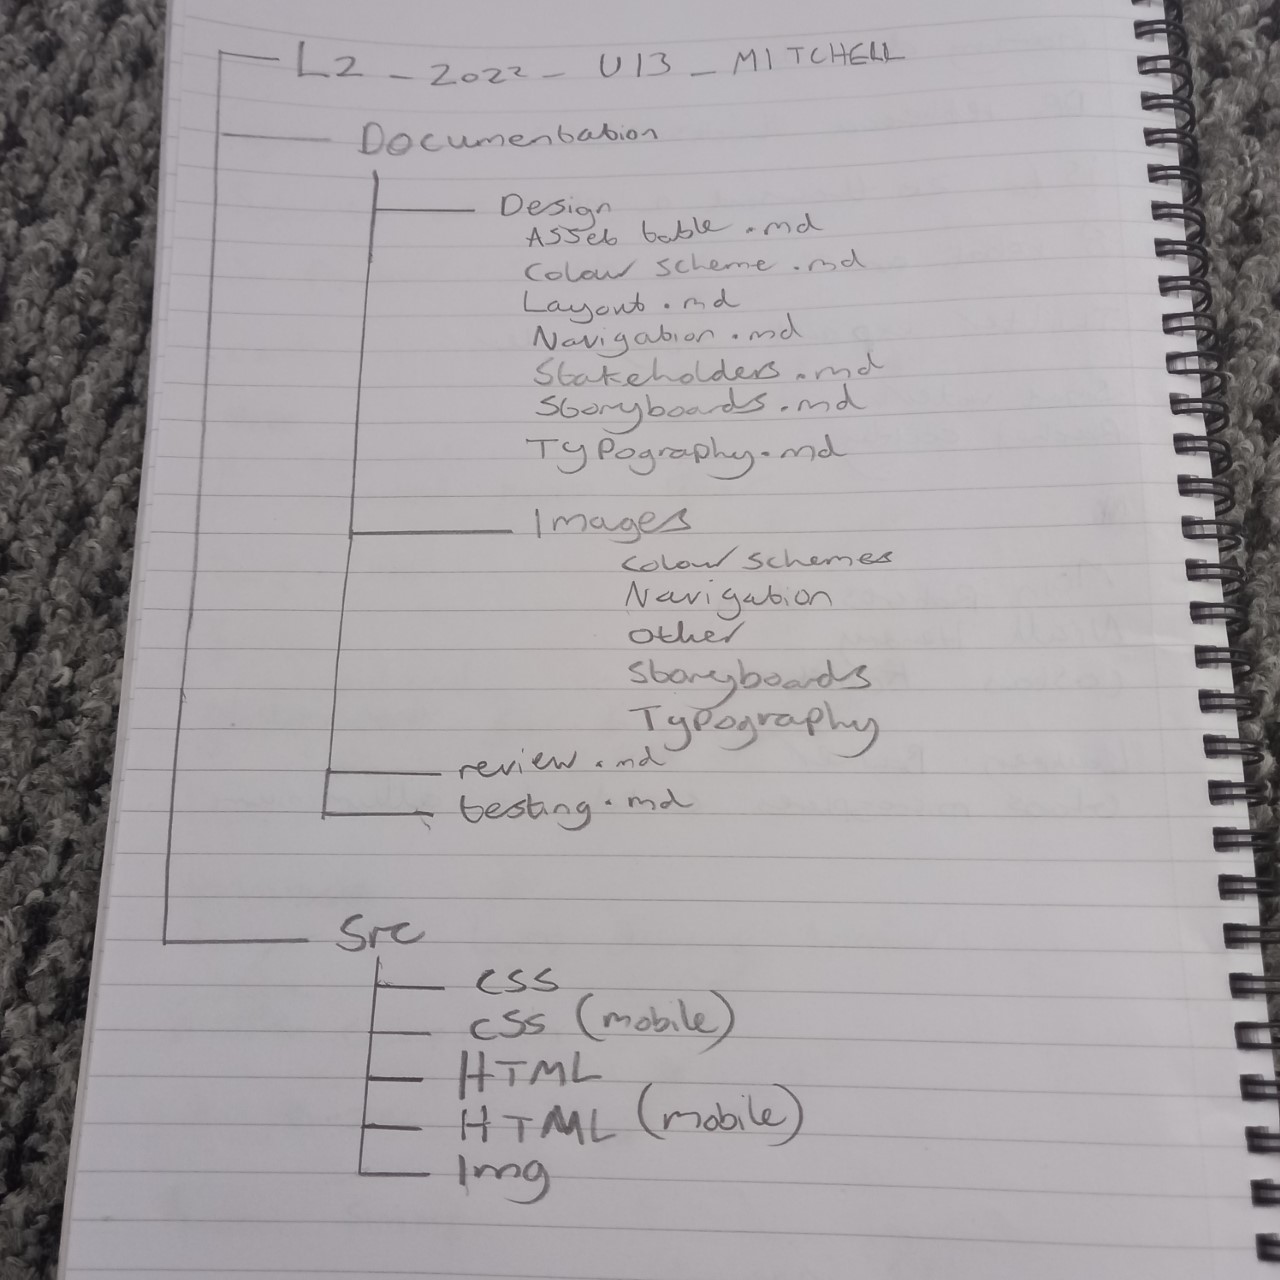 L2 - 2022 - U13 - MITCHELL
Documentation
Design
Asset table .md
Colour scheme .md
Layout .md
Navigation .md
Stakeholders .md
Storyboards .md
Typography .md
Images
Colour schemes
Navigation
Other
Storyboards
Typography
review .md
testing .md
Src
CSS
CSS (mobile)
HTML
HTML (mobile)
Img